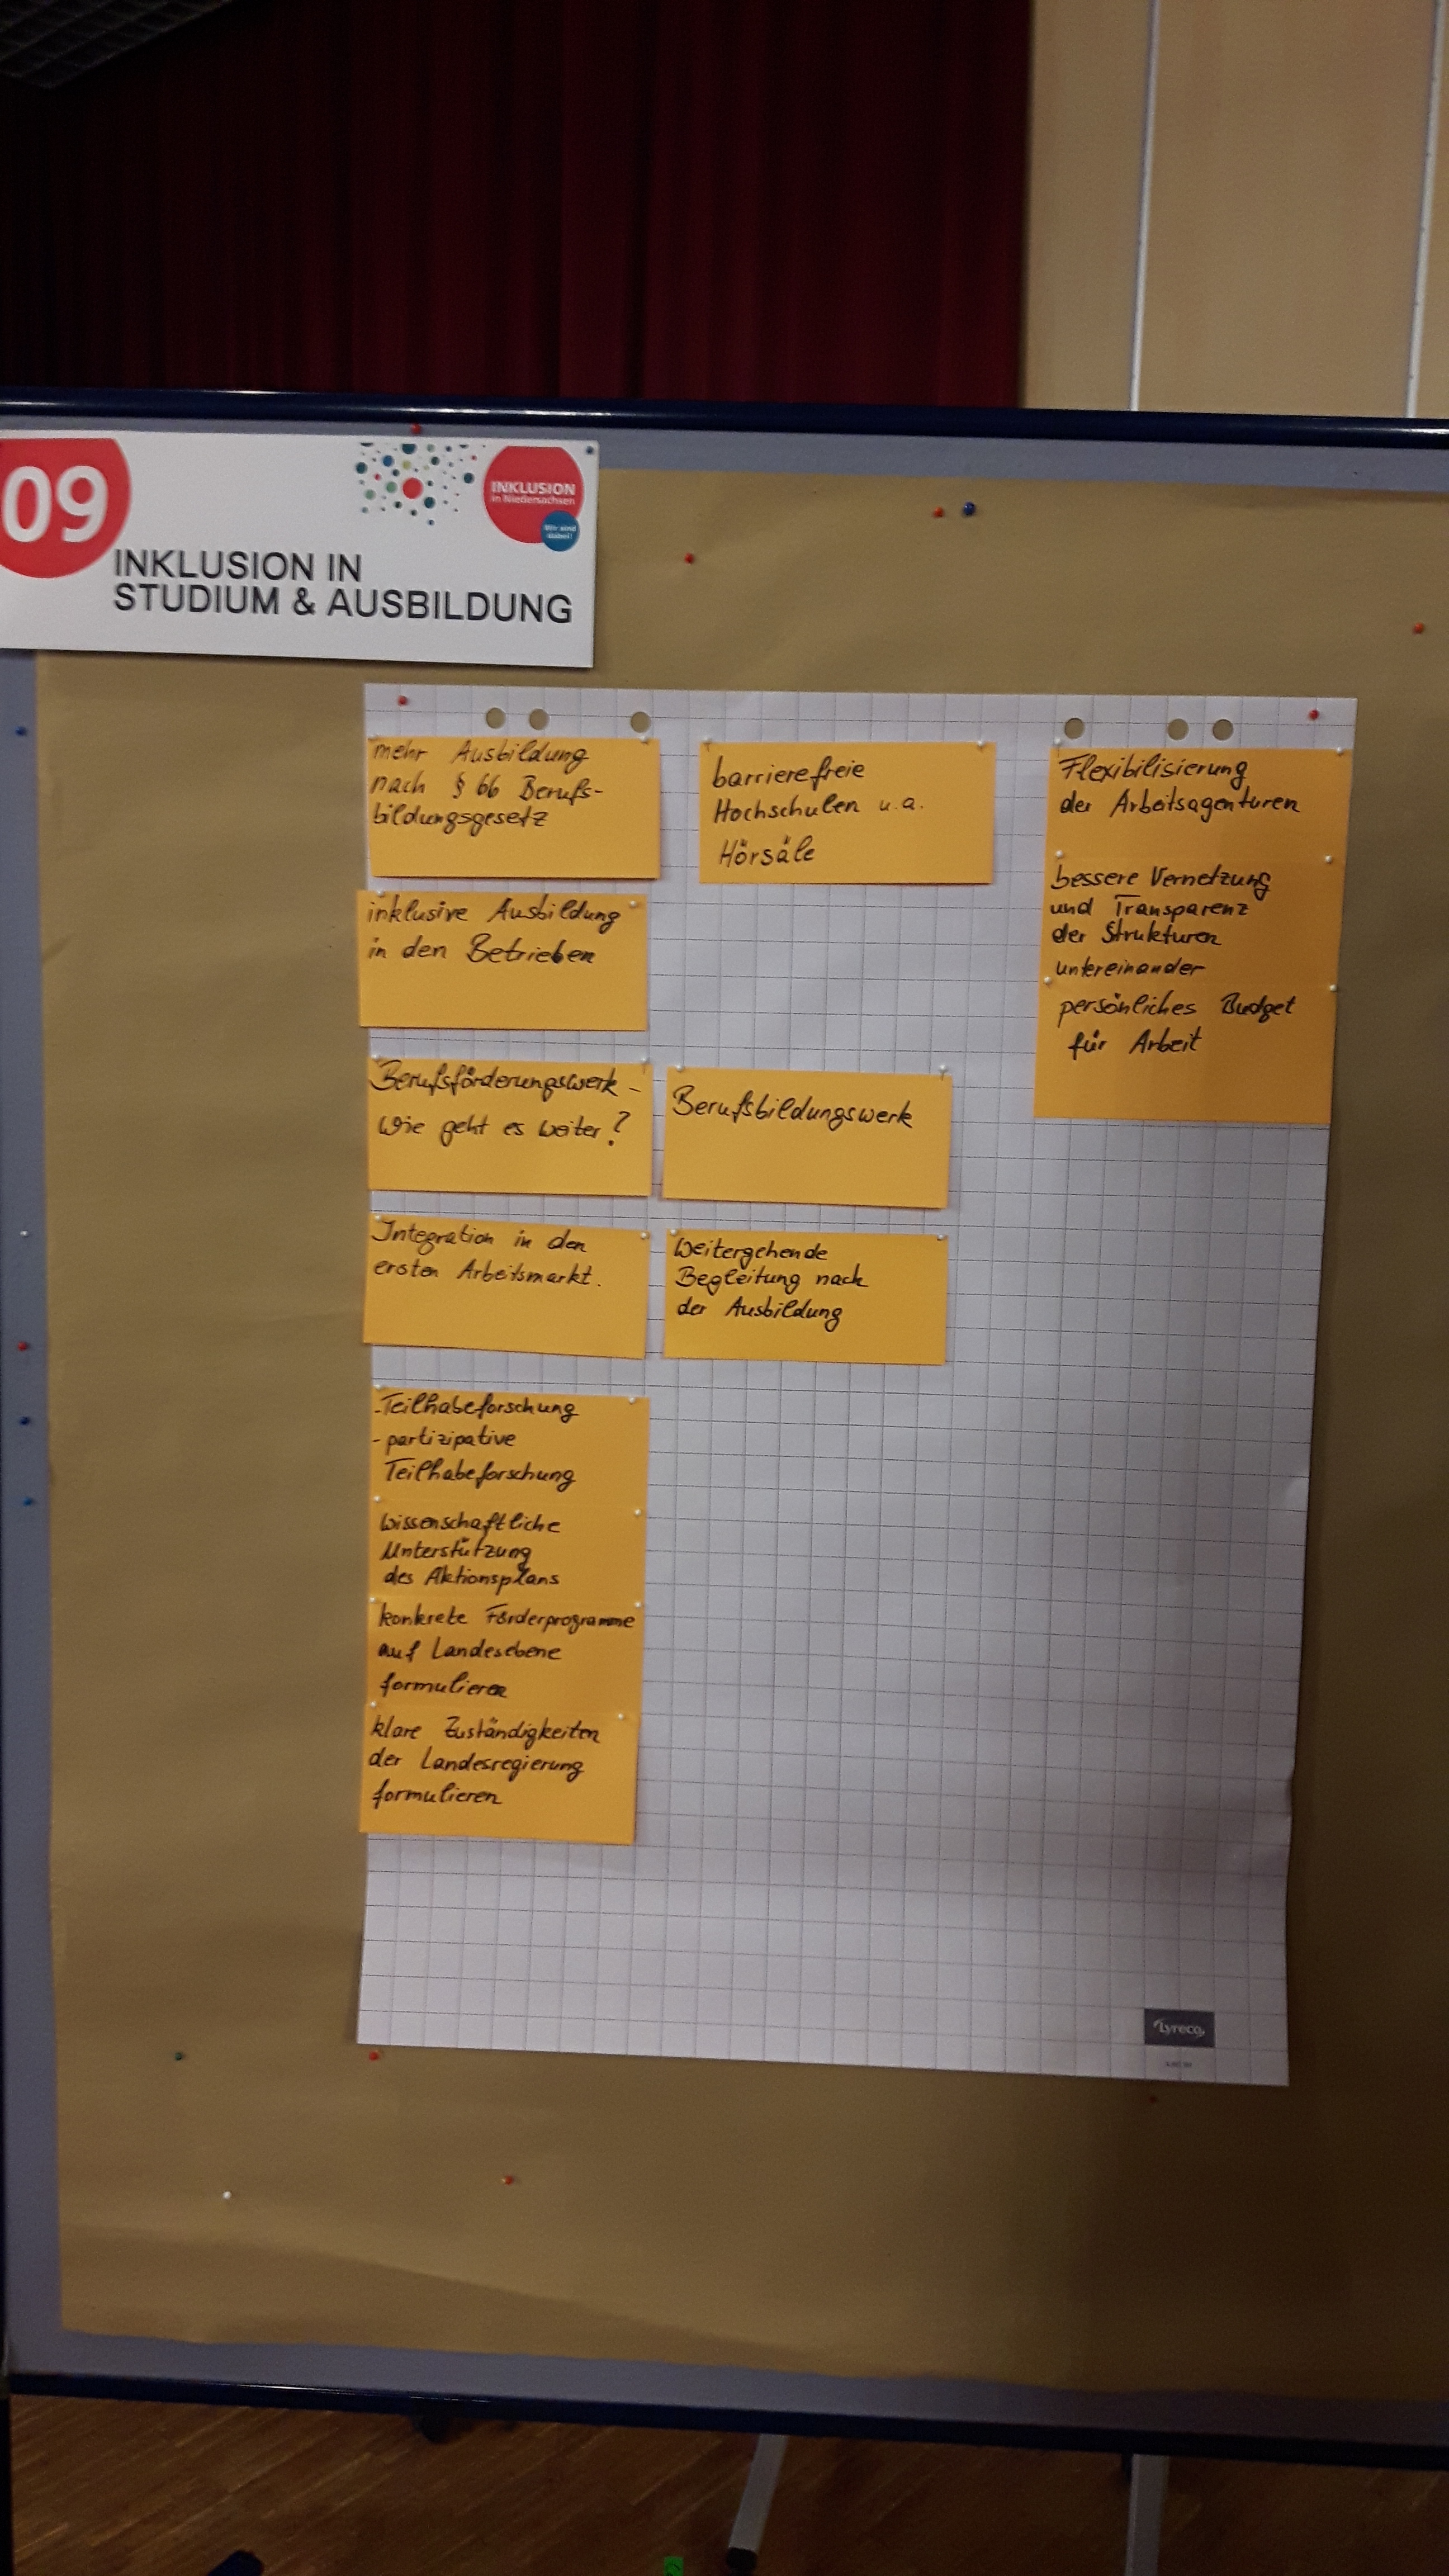 09
INKLUSION
in Niedersachsen
Wir sind
dabei!
INKLUSION IN
STUDIUM & AUSBILDUNG
mehr Ausbildung
nach § 66 Berufs-
bildungsgesetz
inklusive Ausbildung
in den Betrieben
Berufsförderungswerk -
Wie geht es weiter?
Integration in den
ersten Arbeitsmarkt.
- Teilhabeforschung
- partizipative
Teilhabeforschung
wissenschaftliche
Unterstützung
des Aktionsplans
konkrete Förderprogramme
auf Landesebene
formulieren
klare Zuständigkeiten
der Landesregierung
formulieren
barrierefreie
Hochschulen u.a.
Hörsäle
Berufsbildungswerk
Weitergehende
Begleitung nach
der Ausbildung
Flexibilisierung
der Arbeitsagenturen
bessere Vernetzung
und Transparenz
der Strukturen
untereinander
persönliches Budget
für Arbeit
Lyreco